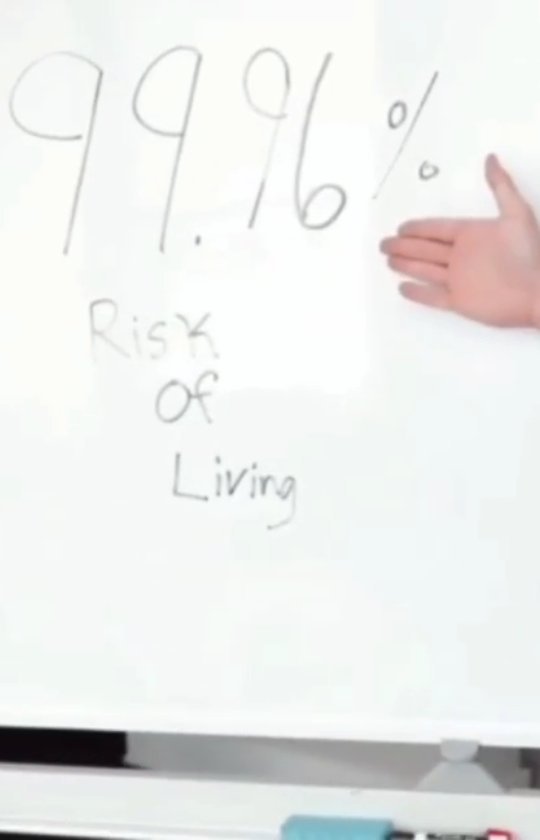 99.96%
Risk
Of
Living